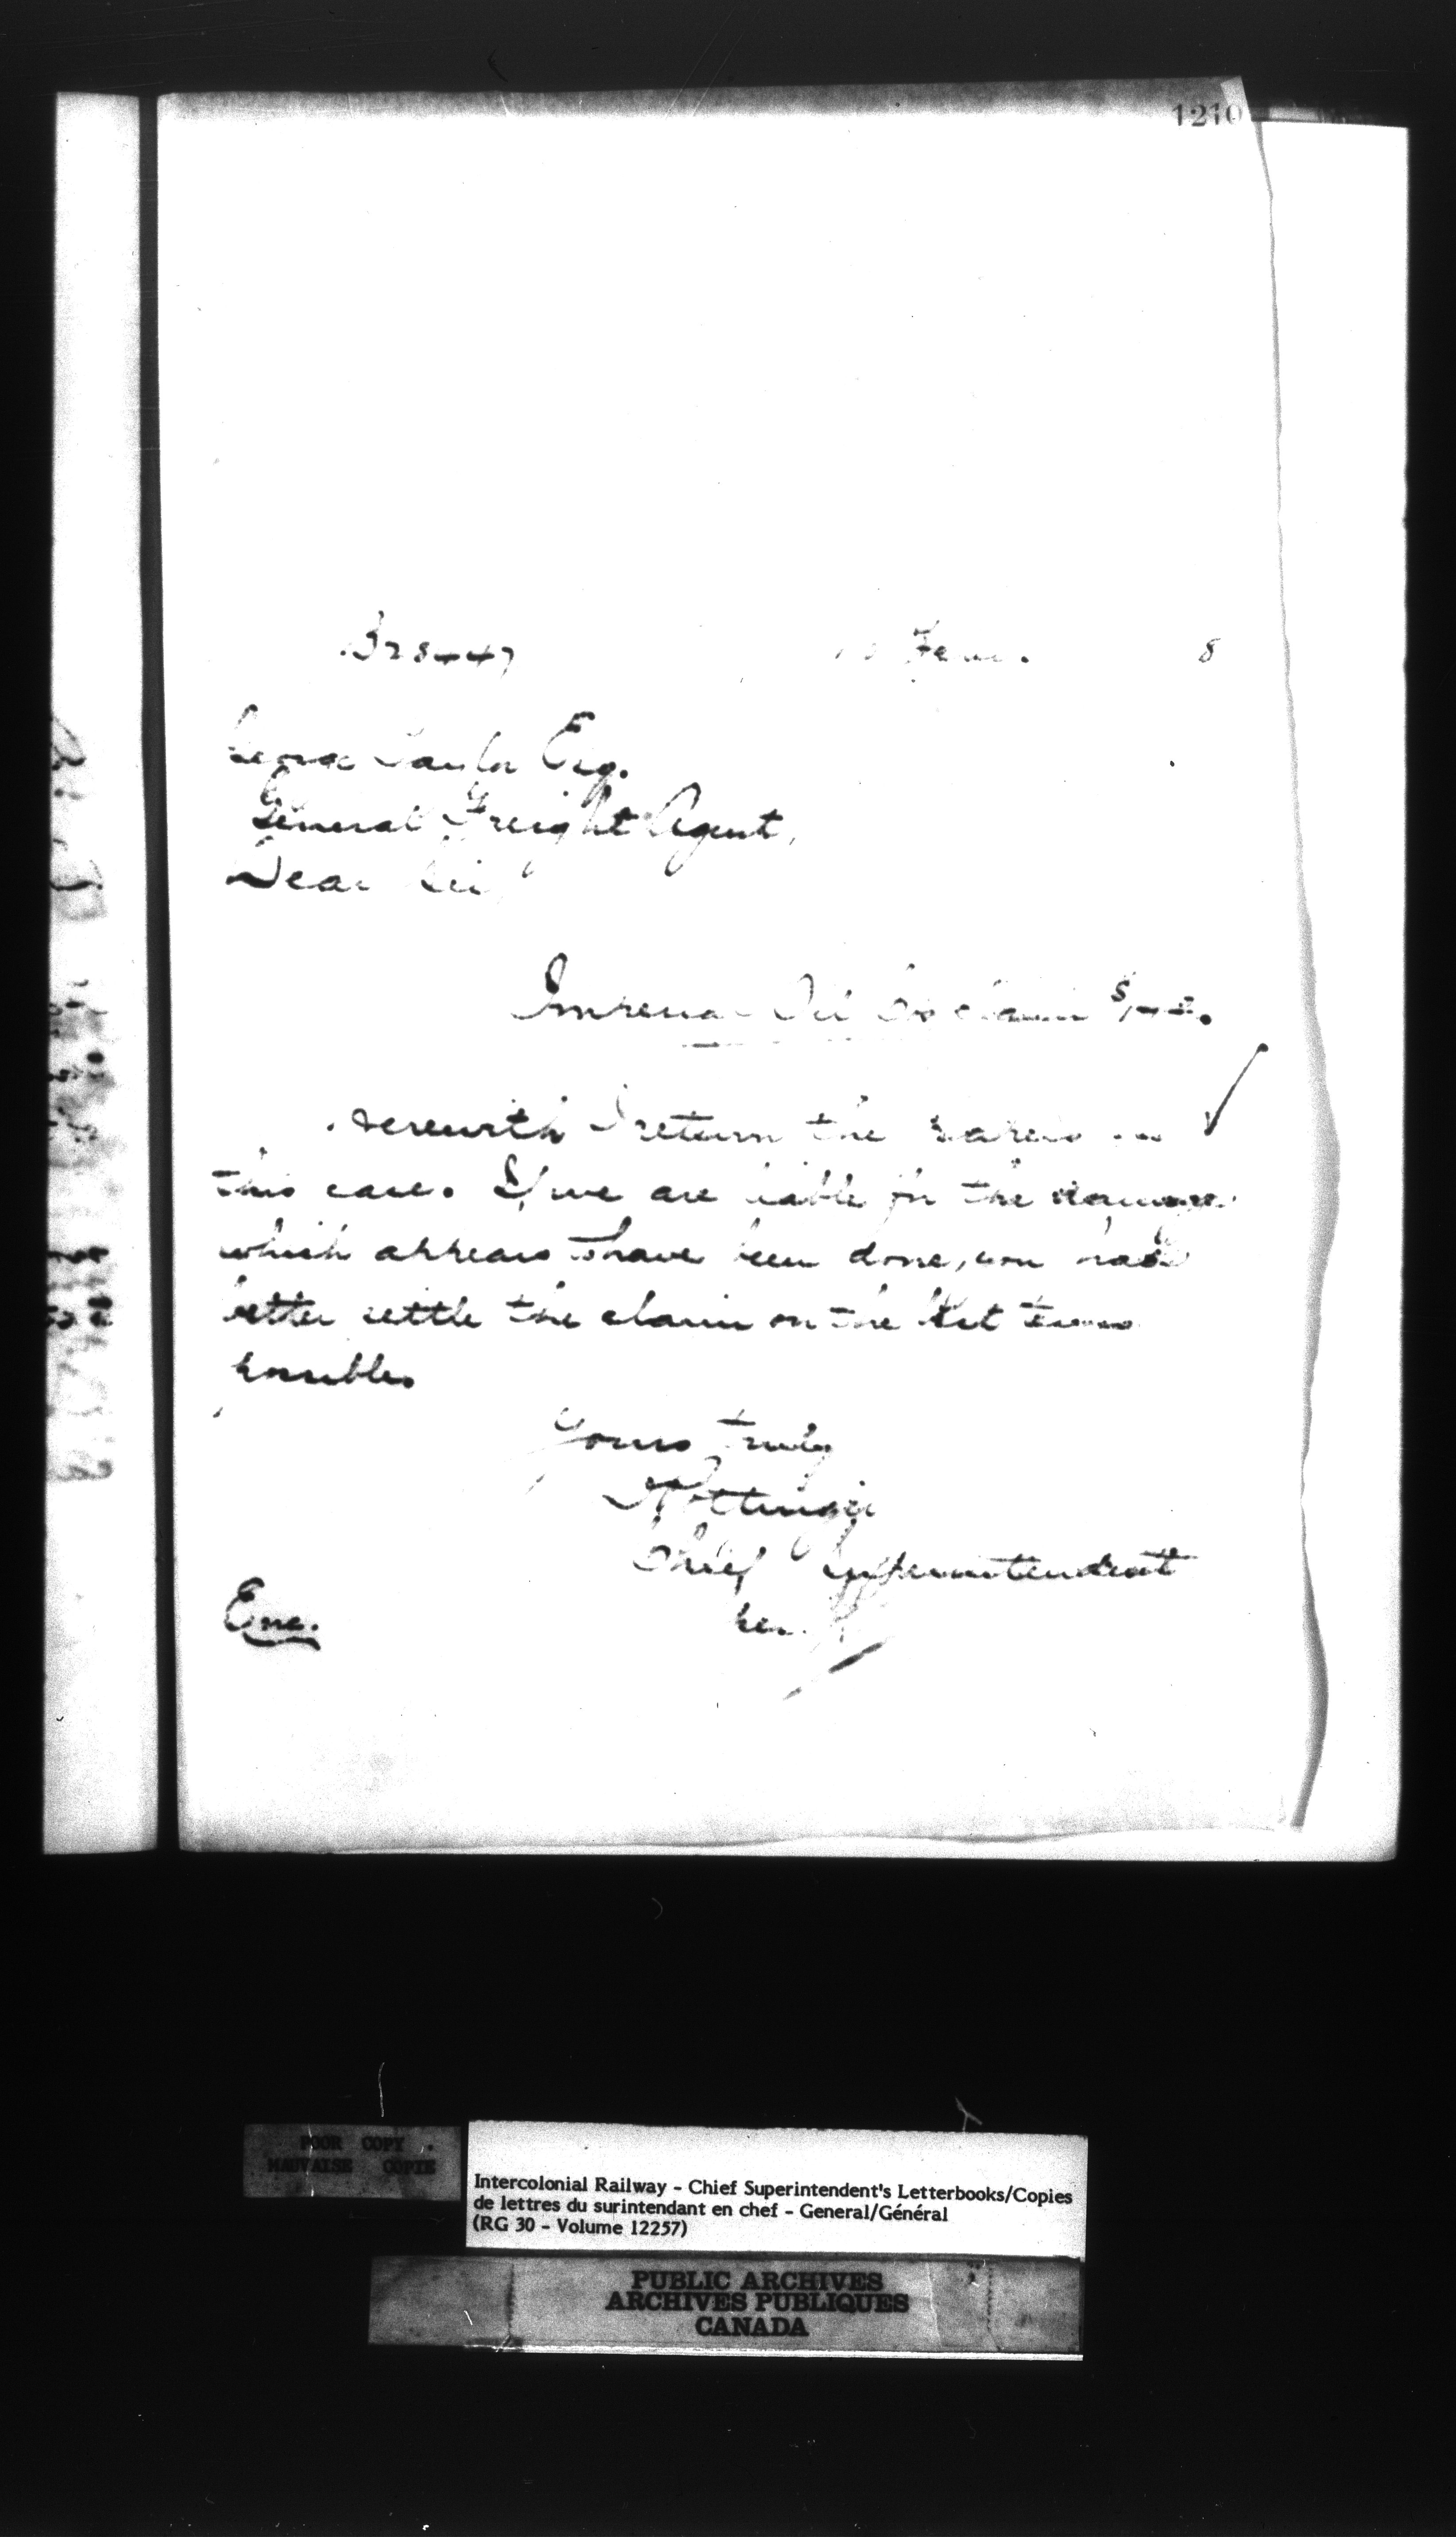 1210
Feby.
8
George Taylor Esq.
General Freight Agent,
Dear Sir
Imperial Oil Co claim
Herewith I return the papers in
this case. If we are liable for the damage
which appears to have been done, you had
better settle the claim on the best terms
possible.
Yours truly
Pottinger
Chief Superintendent
Enc.
POOR COPY
MAUVAISE COPIE
Intercolonial Railway - Chief Superintendent's Letterbooks/Copies
de lettres du surintendant en chef - General/Général
(RG 30 - Volume 12257)
PUBLIC ARCHIVES
ARCHIVES PUBLIQUES
CANADA